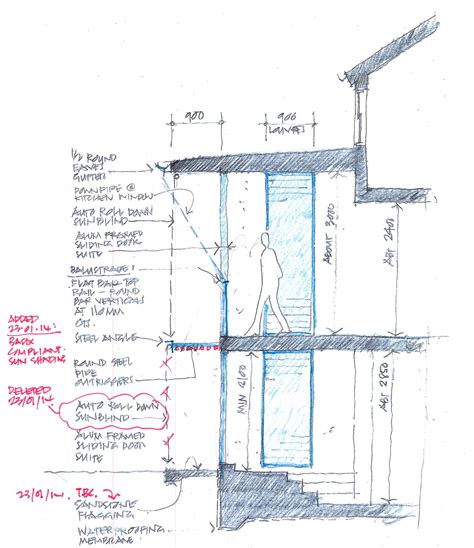 900
900
LOUVRES
1/2 ROUND
EAVES
GUTTER
DOWNPIPE @
KITCHEN WINDOW
AUTO ROLL DOWN
SUNBLIND
ALUM FRAMED
SLIDING DOOR
SUITE
BALUSTRADE:
FLAT BAR TOP
RAIL - ROUND
BAR VERTICALS
AT 110MM
CTS.
STEEL ANGLE
ROUND STEEL
PIPE
OUTRIGGERS
AUTO ROLL DOWN
SUNBLIND
ALUM FRAMED
SLIDING DOOR
SUITE
SANDSTONE
FLAGGING
WATERPROOFING
MEMBRANE
ADDED
23.01.14:
BASIX
COMPLIANT
SUN SHADING
DELETED
23/01/14
23/01/14. TBC.
ABOUT 3000
ABT 2401
MIN 2100
ABT 2850